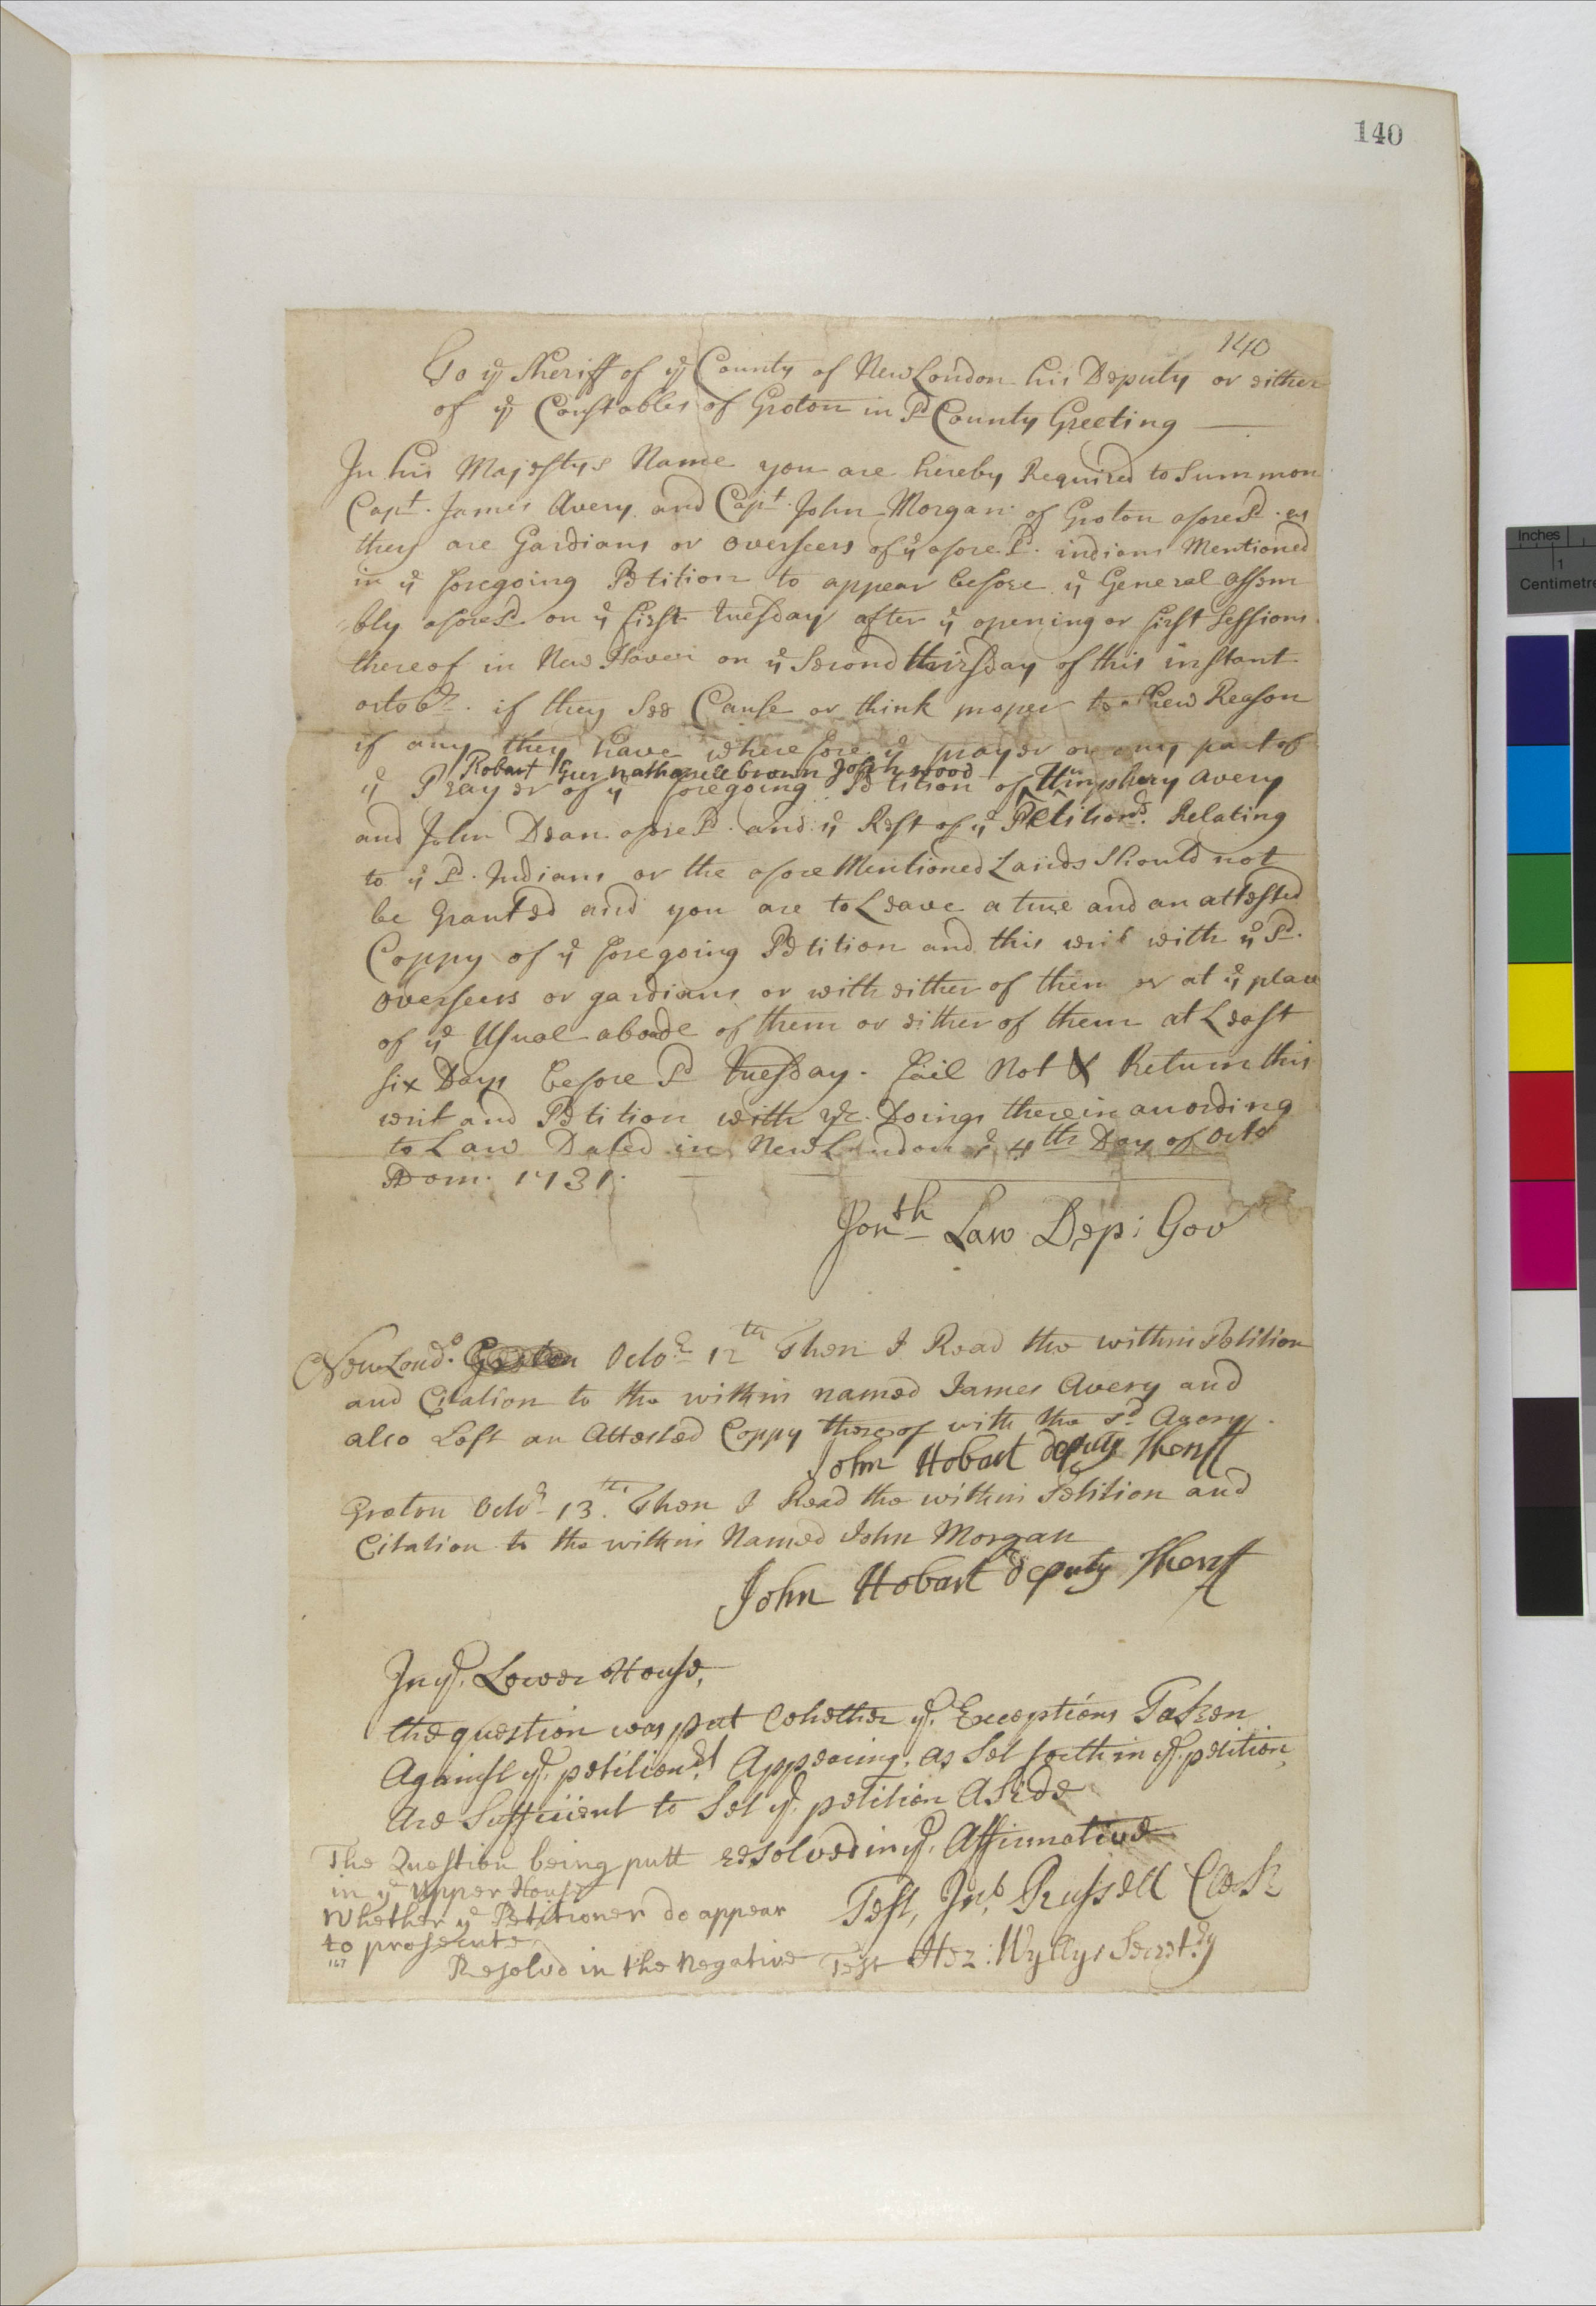 140
140
To yᵉ Sheriff of yᵉ County of New London his Deputy or either
of yᵉ Constables of Groton in sᵈ County Greeting
In his Majestys Name you are hereby Required to Summon
Capᵗ. James Avery and Capᵗ. John Morgan of Groton aforesᵈ. as
they are Gardians or overseers of yᵉ aforesᵈ. indians Mentioned
in yᵉ foregoing Petition to appear before yᵉ General assem
bly aforesᵈ on yᵉ first tuesday after yᵉ opening or first Sessions
thereof in New Haven on yᵉ Second thirsday of this instant
octobʳ. if they See Cause or think proper to Shew Reason
if any they have wherefore yᵉ prayer or any part of
Robart Geer nathaniell brown Joseph wood
yᵉ Prayer of yᵉ foregoing Petition of Humphery Avery
and John Dean aforesᵈ. and yᵉ Rest of yᵉ Petitionʳˢ. Relating
to yᵉ sᵈ. Indians or the afore Mentioned Lands Should not
be Granted and you are to Leave a true and an attested
Coppy of yᵉ foregoing Petition and this writ with yᵉ sᵈ.
overseers or gardians or with either of them or at yᵉ place
of yᵉ Usual aboade of them or either of them at Least
six Days before sᵈ tuesday. fail Not & Return this
writ and Petition with yʳ. Doings therein according
to Law Dated in New London yᵉ 4ᵗʰ Day of Octo
Dom. 1731.
Jonᵗʰ Law Dep: Gov
New Londᵒ. Octoʳ 12ᵗʰ Then I Read the within Petition
and Citation to the within named James Avery and
also Left an Attested Coppy thereof with the sᵈ Avery.
John Hobart deputy Sheriff
Groton Octoʳ 13ᵗʰ. Then I Read the within Petition and
Citation to the within Named John Morgan
John Hobart deputy Sheriff
In yᵉ. Lower House,
the question was put whether yᵉ. Exceptions Taken
Against yᵉ. petitionʳˢ Appearing, as Set forth in yᵉ. petition,
Are Sufficient to Set yᵉ. petition ASide
resolved in yᵉ. Affirmative
Test, Jnᵒ. Russell Clerk
The Question being putt
in yᵉ Upper House
Whether yᵉ Petitioner do appear
to prosecute
Resolvd in the Negative Test Hez: Wyllys Secretʳʸ